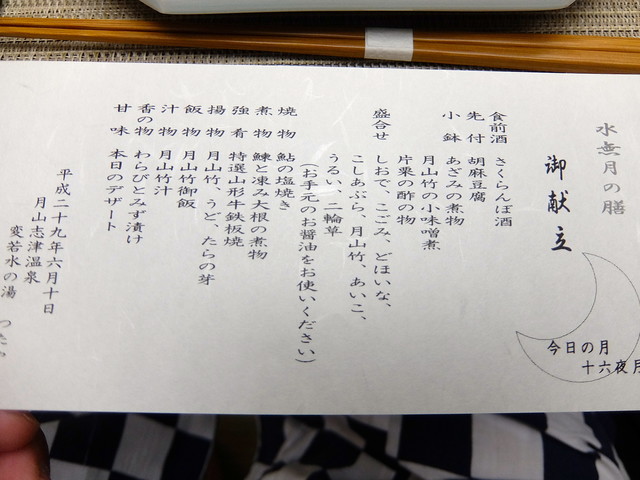 水無月の膳
御献立
今日の月
十六夜月
食前酒 さくらんぼ酒
先付 胡麻豆腐
小鉢 あざみの煮物
月山竹の小味噌煮
片栗の酢の物
盛合せ しおで、こごみ、どほいな、
こしあぶら、月山竹、あいこ、
うるい、二輪草
(お手元のお醤油をお使いください)
焼物 鮎の塩焼き
煮物 鰊と凍み大根の煮物
強肴 特選山形牛鉄板焼
揚物 月山竹、うど、たらの芽
飯物 月山竹御飯
汁物 月山竹汁
香の物 わらびとみず漬け
甘味 本日のデザート
平成二十九年六月十日
月山志津温泉
変若水の湯 つたや